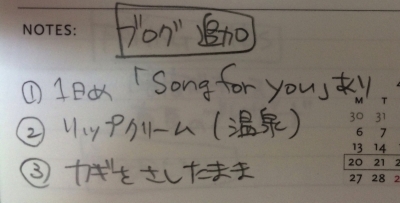 NOTES:
ブログ 追加
① 1日め 「Song for you」あり
② リップクリーム (温泉)
③ カギをさしたまま
M T
30 31
6 7
13 14
20 21
27 28